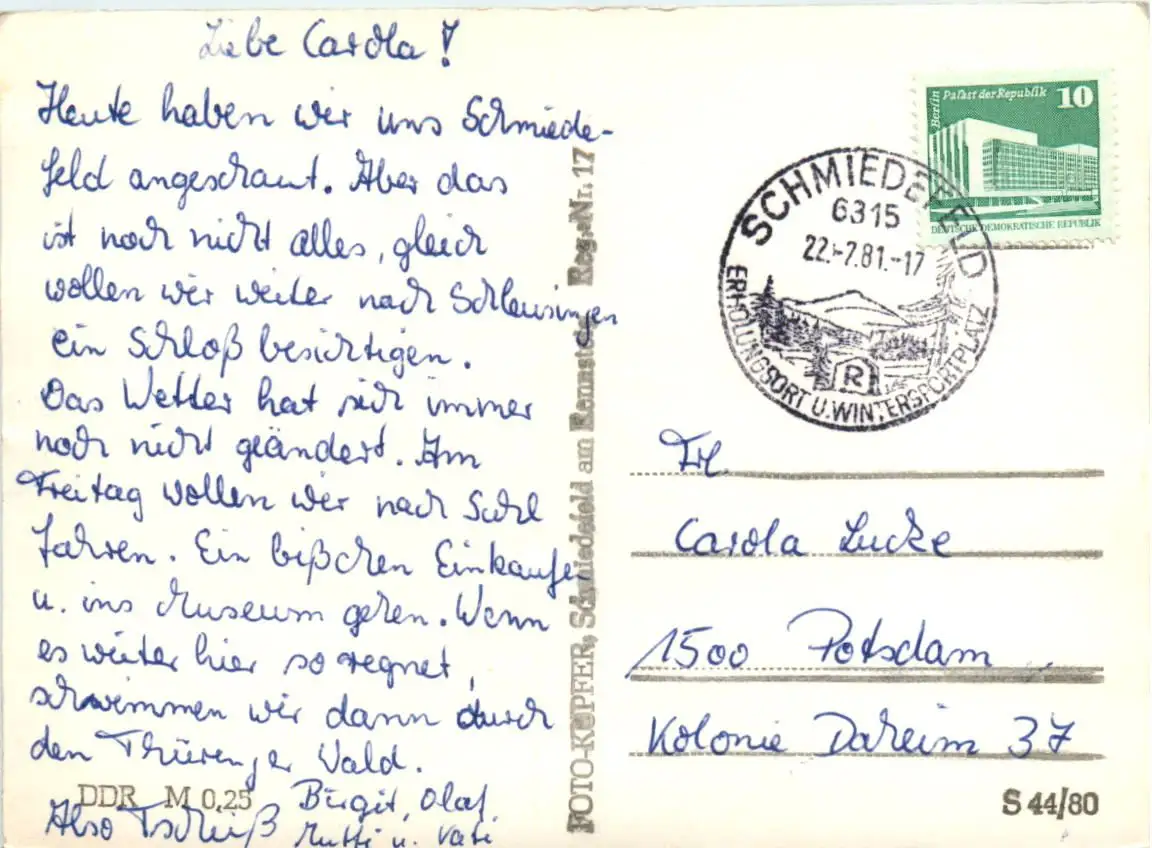 Liebe Carola!
Heute haben wir uns Schmiede-
feld angeschaut. Aber das
ist noch nicht alles, gleich
wollen wir weiter nach Schleusingen
ein Schloß besichtigen.
Das Wetter hat sich immer
noch nicht geändert. Am
Freitag wollen wir nach Suhl
fahren. Ein bißchen Einkaufen
u. ins Museum gehen. Wenn
es weiter hier so regnet,
schwimmen wir dann durch
den Thüringer Wald.
Birgit, Olaf,
Also Tschüß Mutti u. Vati
DDR M 0,25
FOTO-KÖPFER, Schmiedefeld am Rennsteig Reg.-Nr. 17
Berlin Palast der Republik 10
DEUTSCHE DEMOKRATISCHE REPUBLIK
SCHMIEDEFELD
6315
22.-7.81.-17
ERHOLUNGSORT U. WINTERSPORTPLATZ
R
Frl.
Carola Lucke
1500 Potsdam
Kolonie Daheim 37
S 44/80